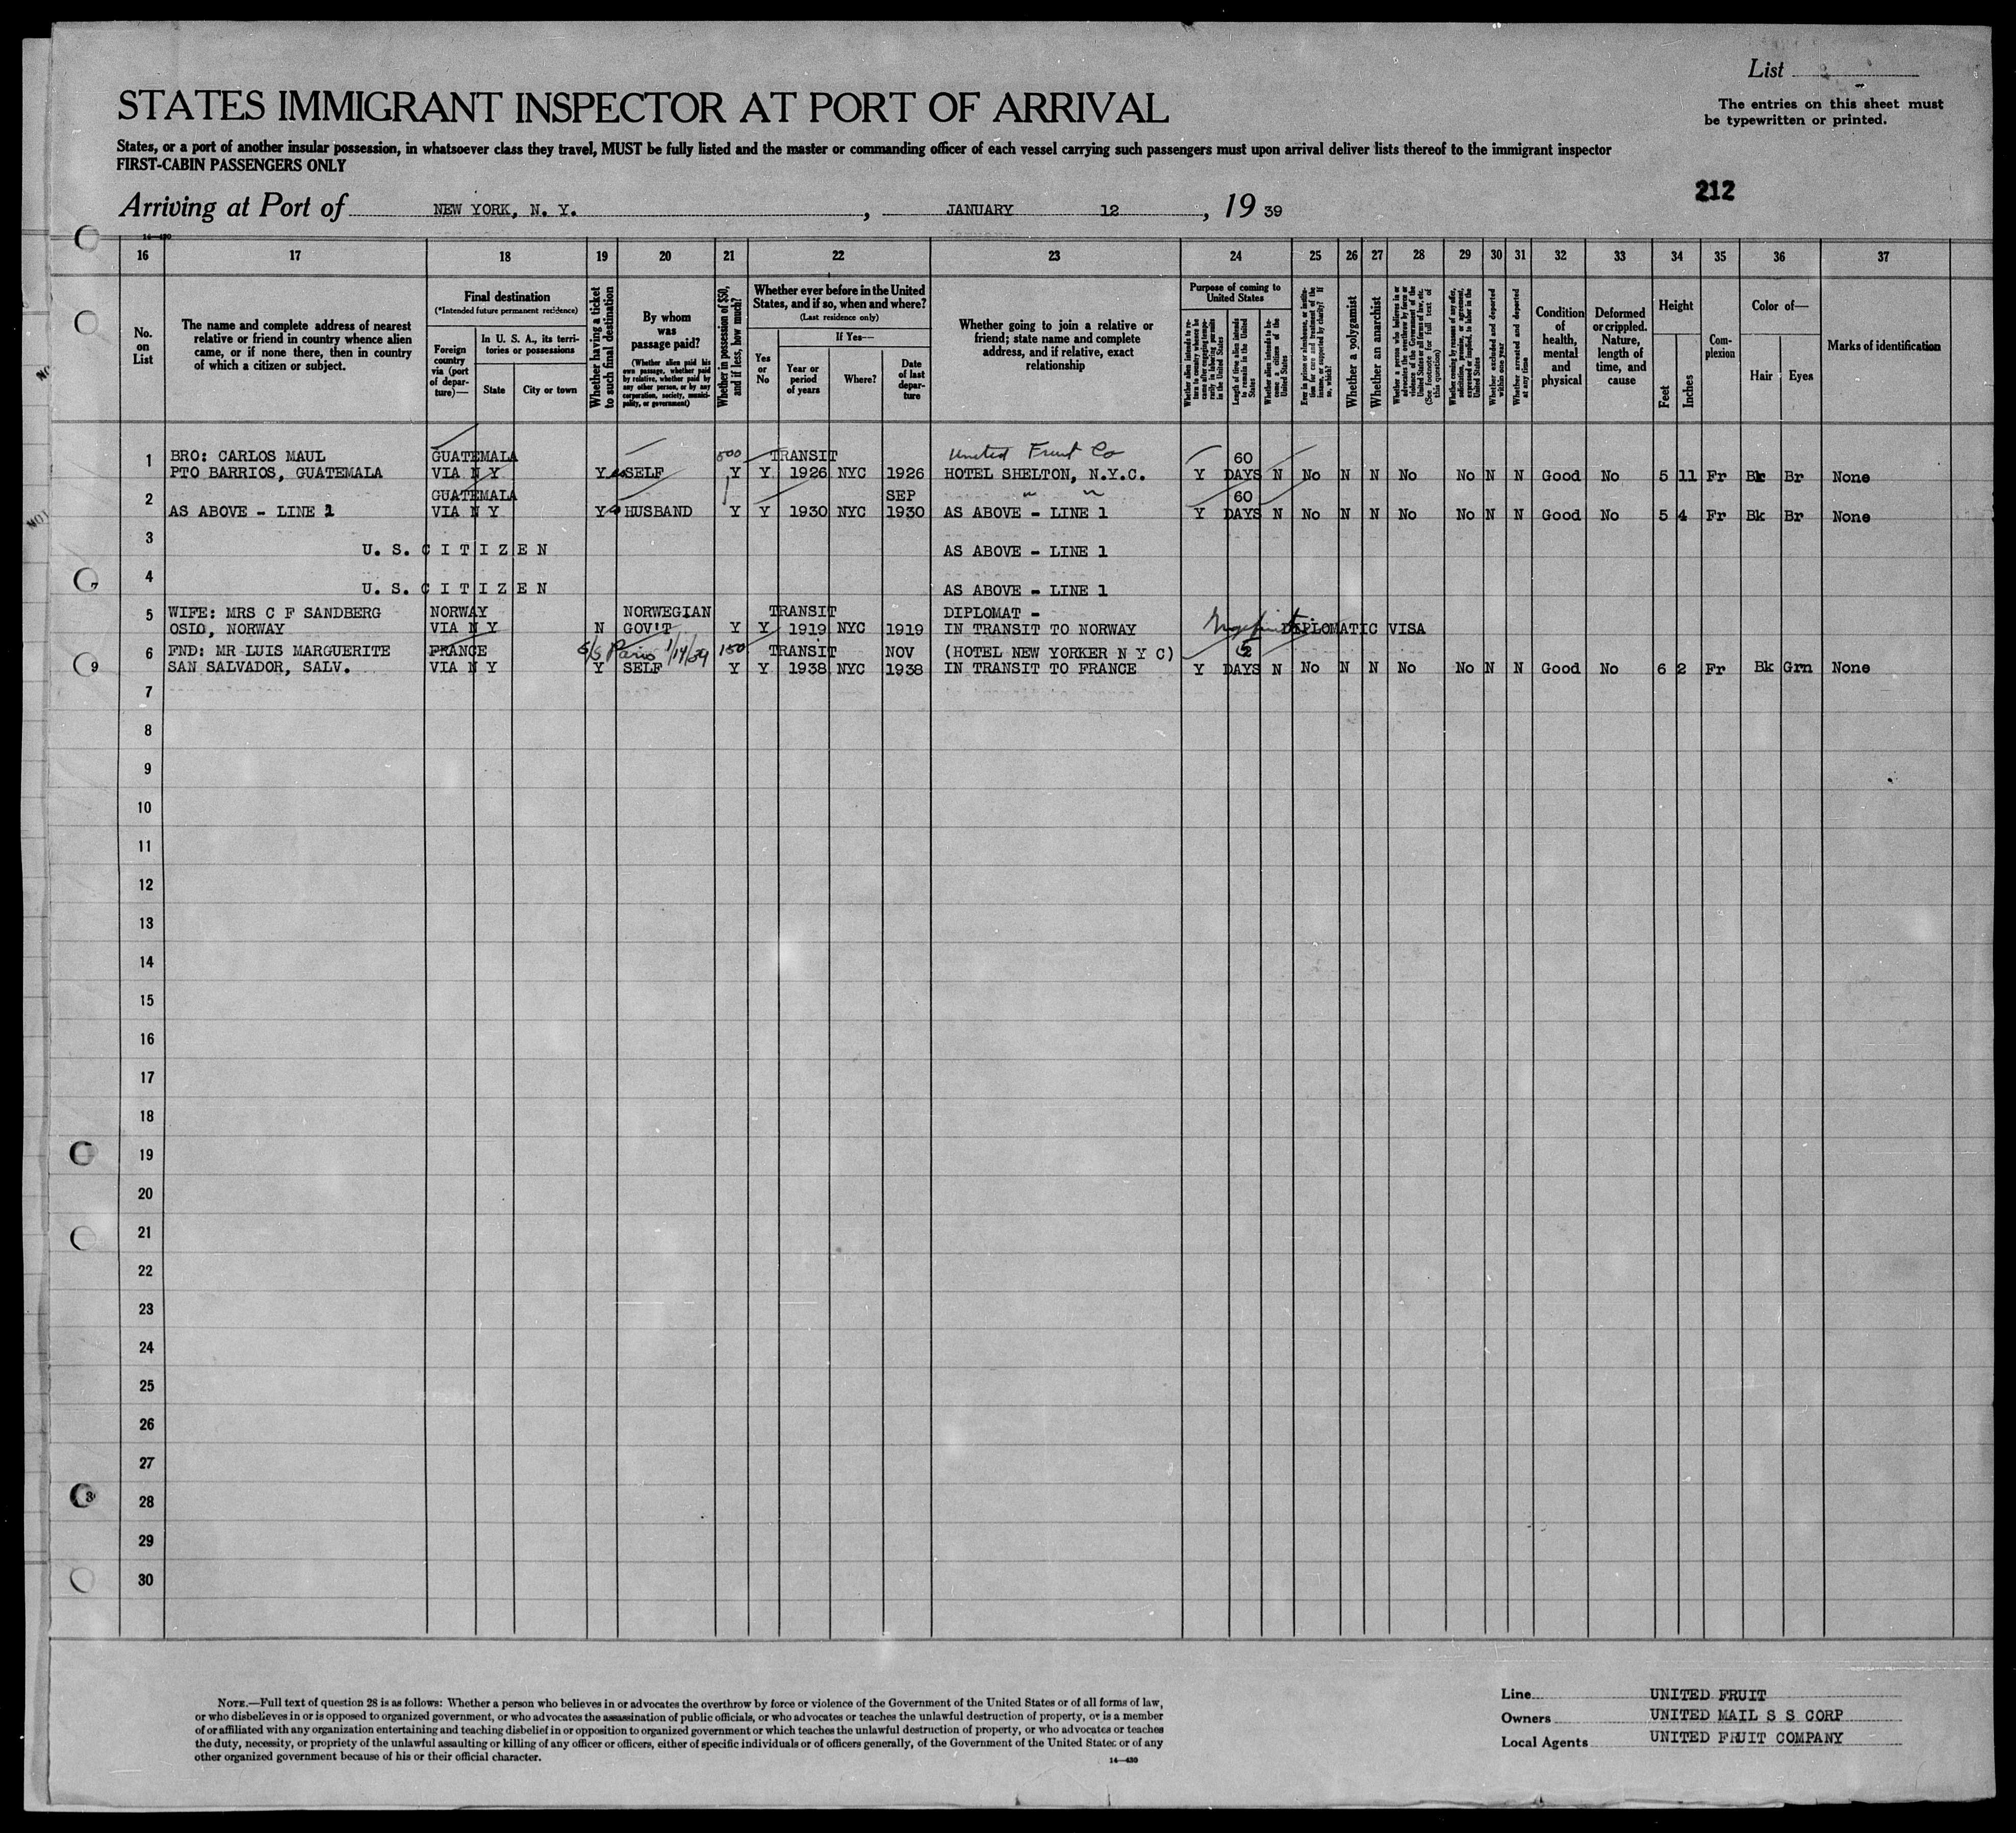 List
The entries on this sheet must
be typewritten or printed.
STATES IMMIGRANT INSPECTOR AT PORT OF ARRIVAL
States, or a port of another insular possession, in whatsoever class they travel, MUST be fully listed and the master or commanding officer of each vessel carrying such passengers must upon arrival deliver lists thereof to the immigrant inspector
FIRST-CABIN PASSENGERS ONLY
212
Arriving at Port of NEW YORK, N. Y. , JANUARY 12 , 19 39
14-430
16 17 18 19 20 21 22 23 24 25 26 27 28 29 30 31 32 33 34 35 36 37
No. on List
The name and complete address of nearest
relative or friend in country whence alien
came, or if none there, then in country
of which a citizen or subject.
Final destination
(*Intended future permanent residence)
Foreign country via (port of departure)—
In U. S. A., its territories or possessions
State
City or town
Whether having a ticket to such final destination
By whom was passage paid?
(Whether alien paid his own passage, whether paid by relative, whether paid by any other person, or by any corporation, society, municipality, or government)
Whether in possession of $50, and if less, how much?
Whether ever before in the United
States, and if so, when and where?
(Last residence only)
Yes or No
If Yes—
Year or period of years
Where?
Date of last departure
Whether going to join a relative or
friend; state name and complete
address, and if relative, exact
relationship
Purpose of coming to
United States
Length of time alien intends to remain in the United States
Whether alien intends to become a citizen of the United States
Whether a polygamist
Whether an anarchist
Whether excluded and deported within one year
Whether arrested and deported at any time
Condition of health, mental and physical
Deformed or crippled. Nature, length of time, and cause
Height
Feet
Inches
Complexion
Color of—
Hair
Eyes
Marks of identification
1 BRO: CARLOS MAUL GUATEMALA 500 TRANSIT United Fruit Co 60
PTO BARRIOS, GUATEMALA VIA N Y Y SELF Y Y 1926 NYC 1926 HOTEL SHELTON, N.Y.C. Y DAYS N No N N No No N N Good No 5 11 Fr Bk Br None
2 GUATEMALA SEP " " 60
AS ABOVE - LINE 1 VIA N Y Y HUSBAND Y Y 1930 NYC 1930 AS ABOVE - LINE 1 Y DAYS N No N N No No N N Good No 5 4 Fr Bk Br None
3
U. S. C I T I Z E N AS ABOVE - LINE 1
4
U. S. C I T I Z E N AS ABOVE - LINE 1
5 WIFE: MRS C F SANDBERG NORWAY NORWEGIAN TRANSIT DIPLOMAT -
OSLO, NORWAY VIA N Y N GOV'T Y Y 1919 NYC 1919 IN TRANSIT TO NORWAY DIPLOMATIC VISA
6 FND: MR LUIS MARGUERITE FRANCE S/S Paris 1/14/39 150 TRANSIT NOV (HOTEL NEW YORKER N Y C)
SAN SALVADOR, SALV. VIA N Y Y SELF Y Y 1938 NYC 1938 IN TRANSIT TO FRANCE Y DAYS N No N N No No N N Good No 6 2 Fr Bk Grn None
7
8
9
10
11
12
13
14
15
16
17
18
19
20
21
22
23
24
25
26
27
28
29
30
NOTE.—Full text of question 28 is as follows: Whether a person who believes in or advocates the overthrow by force or violence of the Government of the United States or of all forms of law,
or who disbelieves in or is opposed to organized government, or who advocates the assassination of public officials, or who advocates or teaches the unlawful destruction of property, or is a member
of or affiliated with any organization entertaining and teaching disbelief in or opposition to organized government or which teaches the unlawful destruction of property, or who advocates or teaches
the duty, necessity, or propriety of the unlawful assaulting or killing of any officer or officers, either of specific individuals or of officers generally, of the Government of the United States or of any
other organized government because of his or their official character.
14-430
Line UNITED FRUIT
Owners UNITED MAIL S S CORP
Local Agents UNITED FRUIT COMPANY